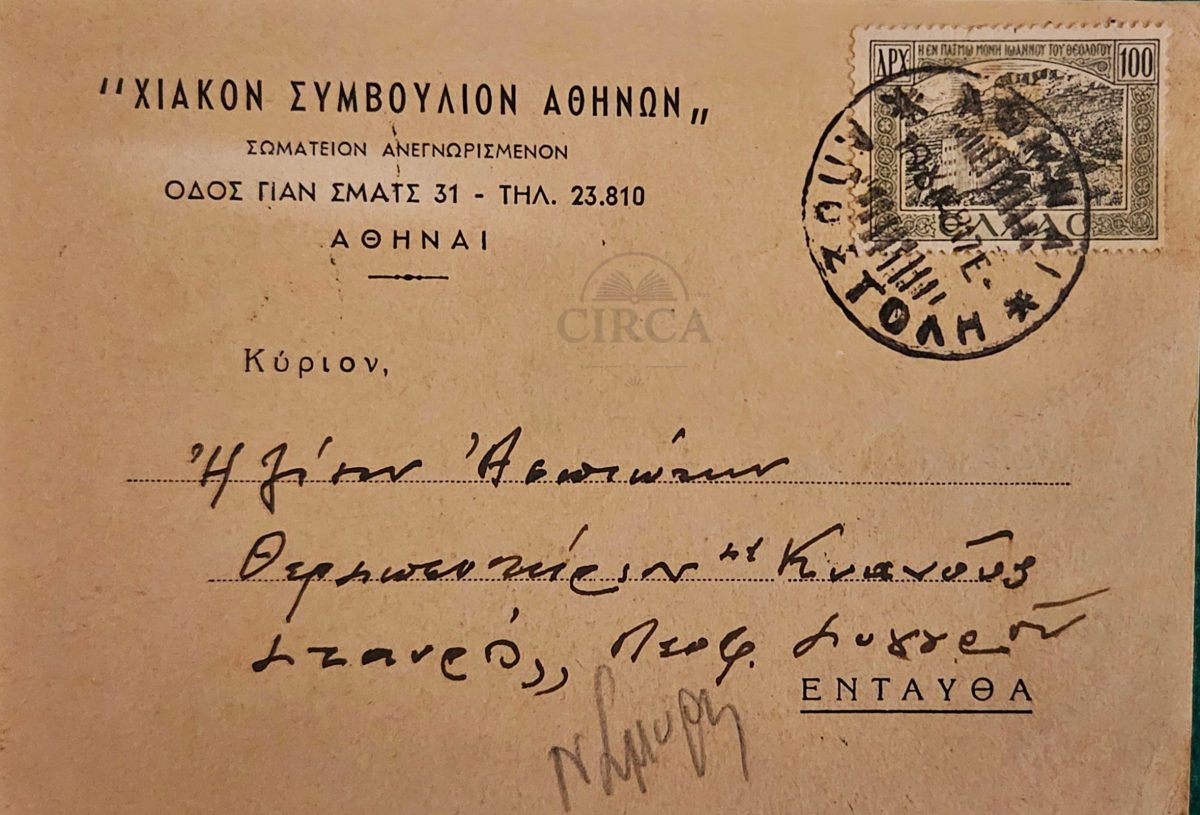 "ΧΙΑΚΟΝ ΣΥΜΒΟΥΛΙΟΝ ΑΘΗΝΩΝ„
ΣΩΜΑΤΕΙΟΝ ΑΝΕΓΝΩΡΙΣΜΕΝΟΝ
ΟΔΟΣ ΓΙΑΝ ΣΜΑΤΣ 31 - ΤΗΛ. 23.810
ΑΘΗΝΑΙ
ΔΡΧ
Η ΕΝ ΠΑΤΜΩ ΜΟΝΗ ΙΩΑΝΝΟΥ ΤΟΥ ΘΕΟΛΟΓΟΥ
100
ΕΛΛΑΣ
ΑΘΗΝΑΙ
ΑΠΟΣΤΟΛΗ
CIRCA
Κύριον,
Ἀσπιώτην
Θεραπευτήριον "Κυανοῦς
Σταυρός„ Λεωφ. Συγγροῦ
ΕΝΤΑΥΘΑ
Ν Σμύρνη